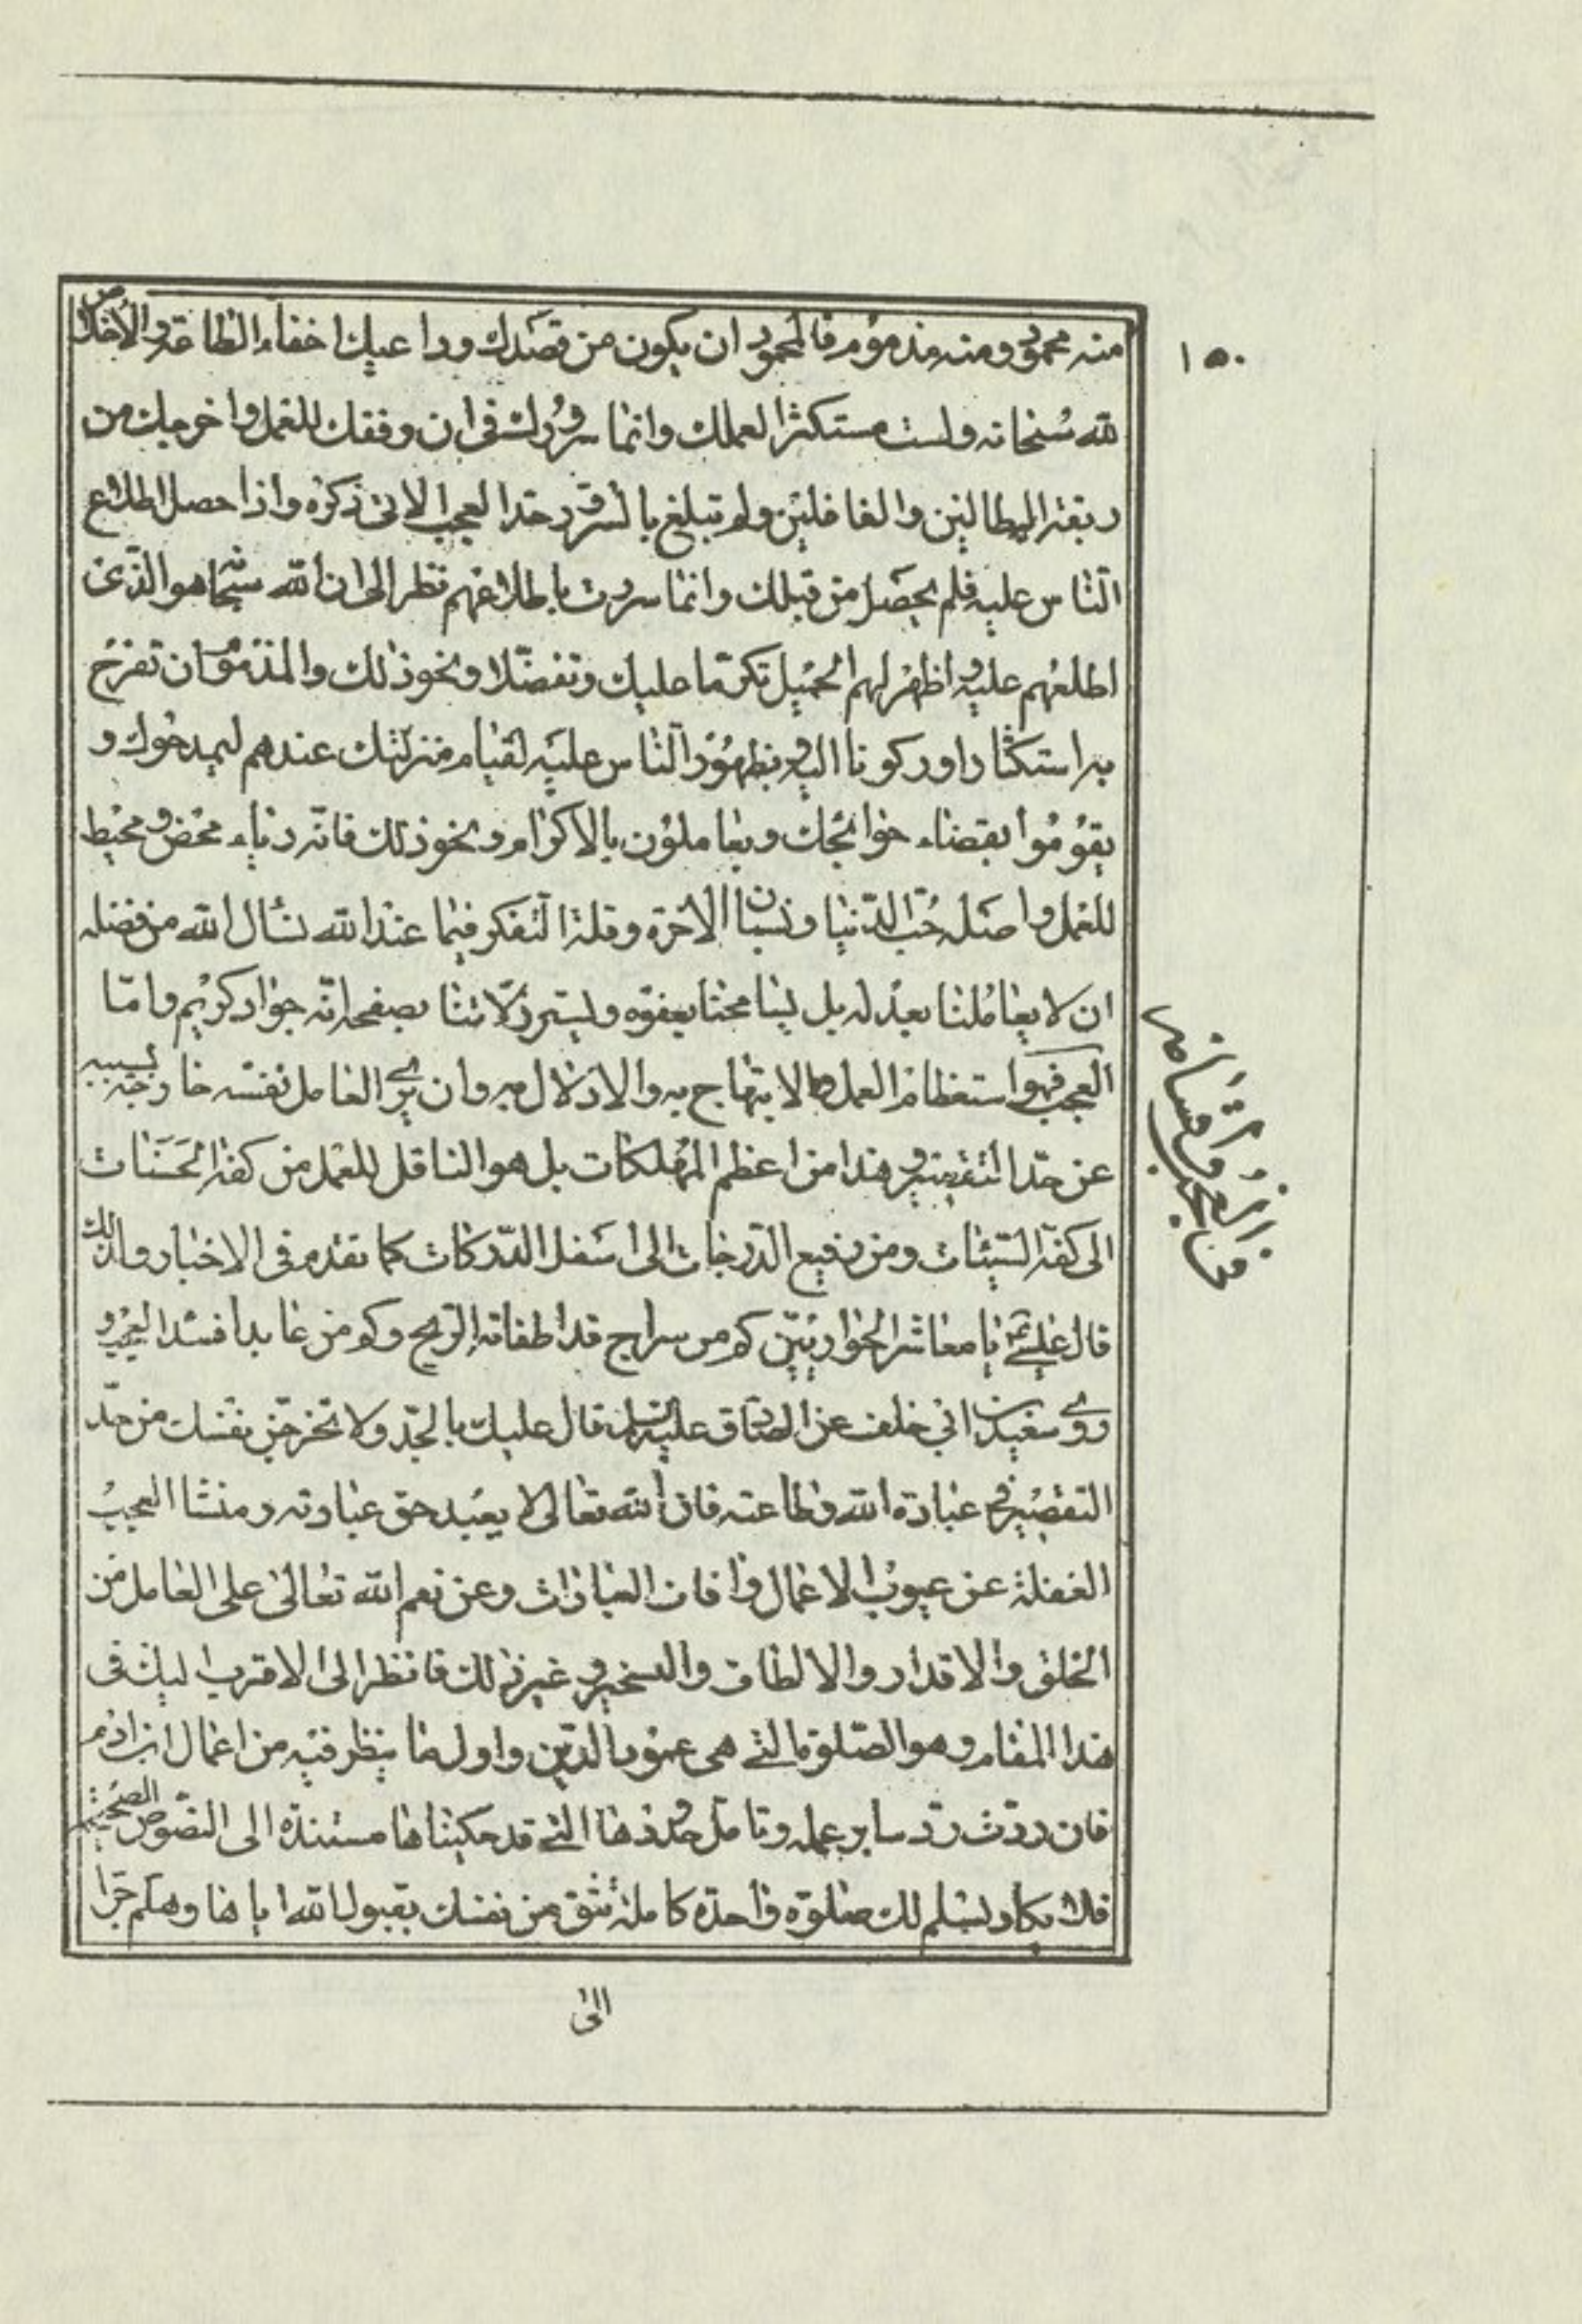 ١٥٠
منه محمود ومنه مذموم فالمحمود ان يكون من قصدك وداعيك اخفاء الطاعة والاخلاص
لله سبحانه ولست مستكثرا لعملك وانما سرورك فى ان وفقك للعمل واخرجك من
ربقة البطالين والغافلين ولم تبلغ بالسرور حد العجب الاتى ذكره واذا حصل اطلاع
الناس عليه فلم يحصل من قبلك وانما سررت باطلاعهم نظرا الى ان الله سبحانه هو الذى
اطلعهم عليه واظهر لهم الجميل تكرما عليك وتفضلا ونحو ذلك والمذموم ان تفرح
به استكثارا وركونا اليه وبظهور الناس عليه لقيام منزلتك عندهم ليمدحوك و
يقوموا بقضاء حوائجك ويعاملون بالاكرام ونحو ذلك فانه رياء محض ومحبط
للعمل واصله حب الدنيا ونسيان الاخرة وقلة التفكر فيما عند الله نسال الله من فضله
ان لا يعاملنا بعدله بل يسامحنا بعفوه ويستر زلاتنا بصفحه انه جواد كريم واما
العجب فهو استعظام العمل والابتهاج به والادلال به وان يرى العامل نفسه خارجة بسببه
عن حد التقصير وهذا من اعظم المهلكات بل هو الناقل للعمل من كفة الحسنات
الى كفة السيئات ومن رفيع الدرجات الى اسفل الدركات كما تقدم فى الاخبار ولذلك
قال عيسى ع يا معاشر الحواريين كم من سراج قد اطفاته الريح وكم من عابد افسده العجب و
روى سعيد بن ابي خلف عن الصادق عليه السلام قال عليك بالجد ولا تخرجن نفسك من حد
التقصير فى عبادة الله وطاعته فان الله تعالى لا يعبد حق عبادته ومنشا العجب
الغفلة عن عيوب الاعمال وافات العبادات وعن نعم الله تعالى على العامل من
الخلق والاقدار والالطاف والتسخير وغير ذلك فانظر الى الاقرب اليك فى
هذا المقام وهو الصلوة التى هى عمود الدين واول ما ينظر فيه من اعمال ابن ادم
فان ردت رد ساير عمله وتامل حدودها التى قد حكيناها مسندة الى النصوص الصحيحة
فلا يكاد يسلم لك صلوة واحدة كاملة تثق من نفسك بقبول الله اياها وهلم جرا
الى